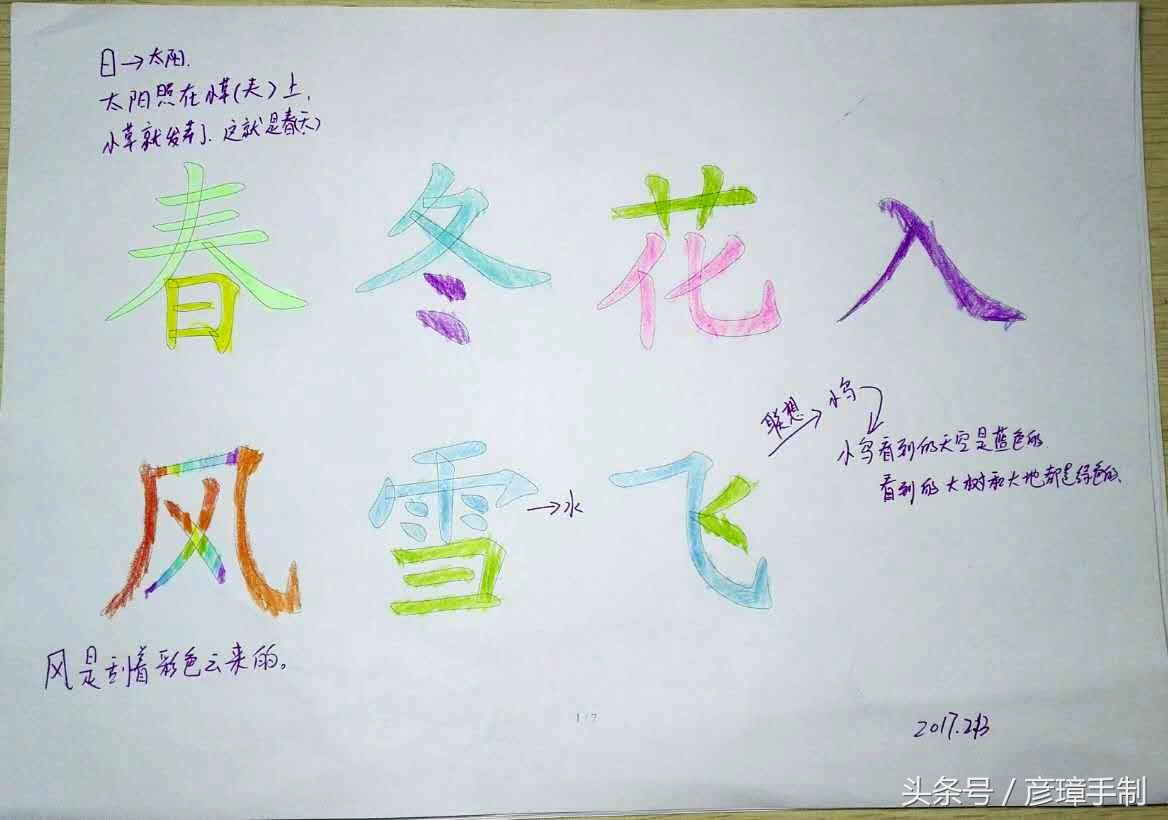 日→太阳.
太阳照在小草(夫)上,
小草就发芽了、这就是春天)
春 冬 花 入
联想→小鸟
小鸟看到的天空是蓝色的
看到的大树和大地都是绿色的、
风 雪→水 飞
风是刮着彩色云来的。
1/7
2017.2.13
头条号 / 彦璋手制